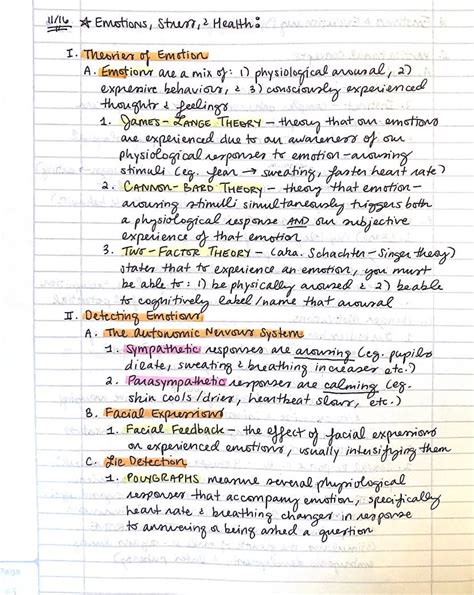 11/16 ☆ Emotions, Stress, & Health:
I. Theories of Emotion
A. Emotions are a mix of: 1) physiological arousal, 2)
expressive behaviors, & 3) consciously experienced
thoughts & feelings
1. JAMES-LANGE THEORY - theory that our emotions
are experienced due to an awareness of our
physiological responses to emotion-arousing
stimuli (eg. fear → sweating, faster heart rate)
2. CANNON-BARD THEORY - theory that emotion-
arousing stimuli simultaneously triggers both
a physiological response AND our subjective
experience of that emotion
3. TWO-FACTOR THEORY - (aka. Schachter-Singer theory)
states that to experience an emotion, you must
be able to: 1) be physically aroused & 2) be able
to cognitively label/name that arousal
II. Detecting Emotions
A. The Autonomic Nervous System
1. Sympathetic responses are arousing (eg. pupils
dilate, sweating & breathing increases etc.)
2. Parasympathetic responses are calming (eg.
skin cools/dries, heartbeat slows, etc.)
B. Facial Expressions
1. Facial Feedback - the effect of facial expressions
on experienced emotions, usually intensifying them
C. Lie Detection
1. POLYGRAPHS measure several physiological
responses that accompany emotion, specifically
heart rate & breathing changes in response
to answering or being asked a question